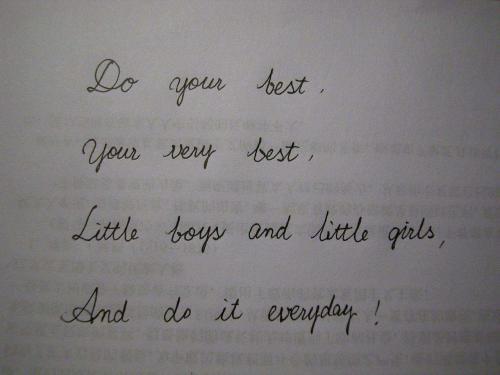 Do your best.
Your very best,
Little boys and little girls,
And do it everyday!